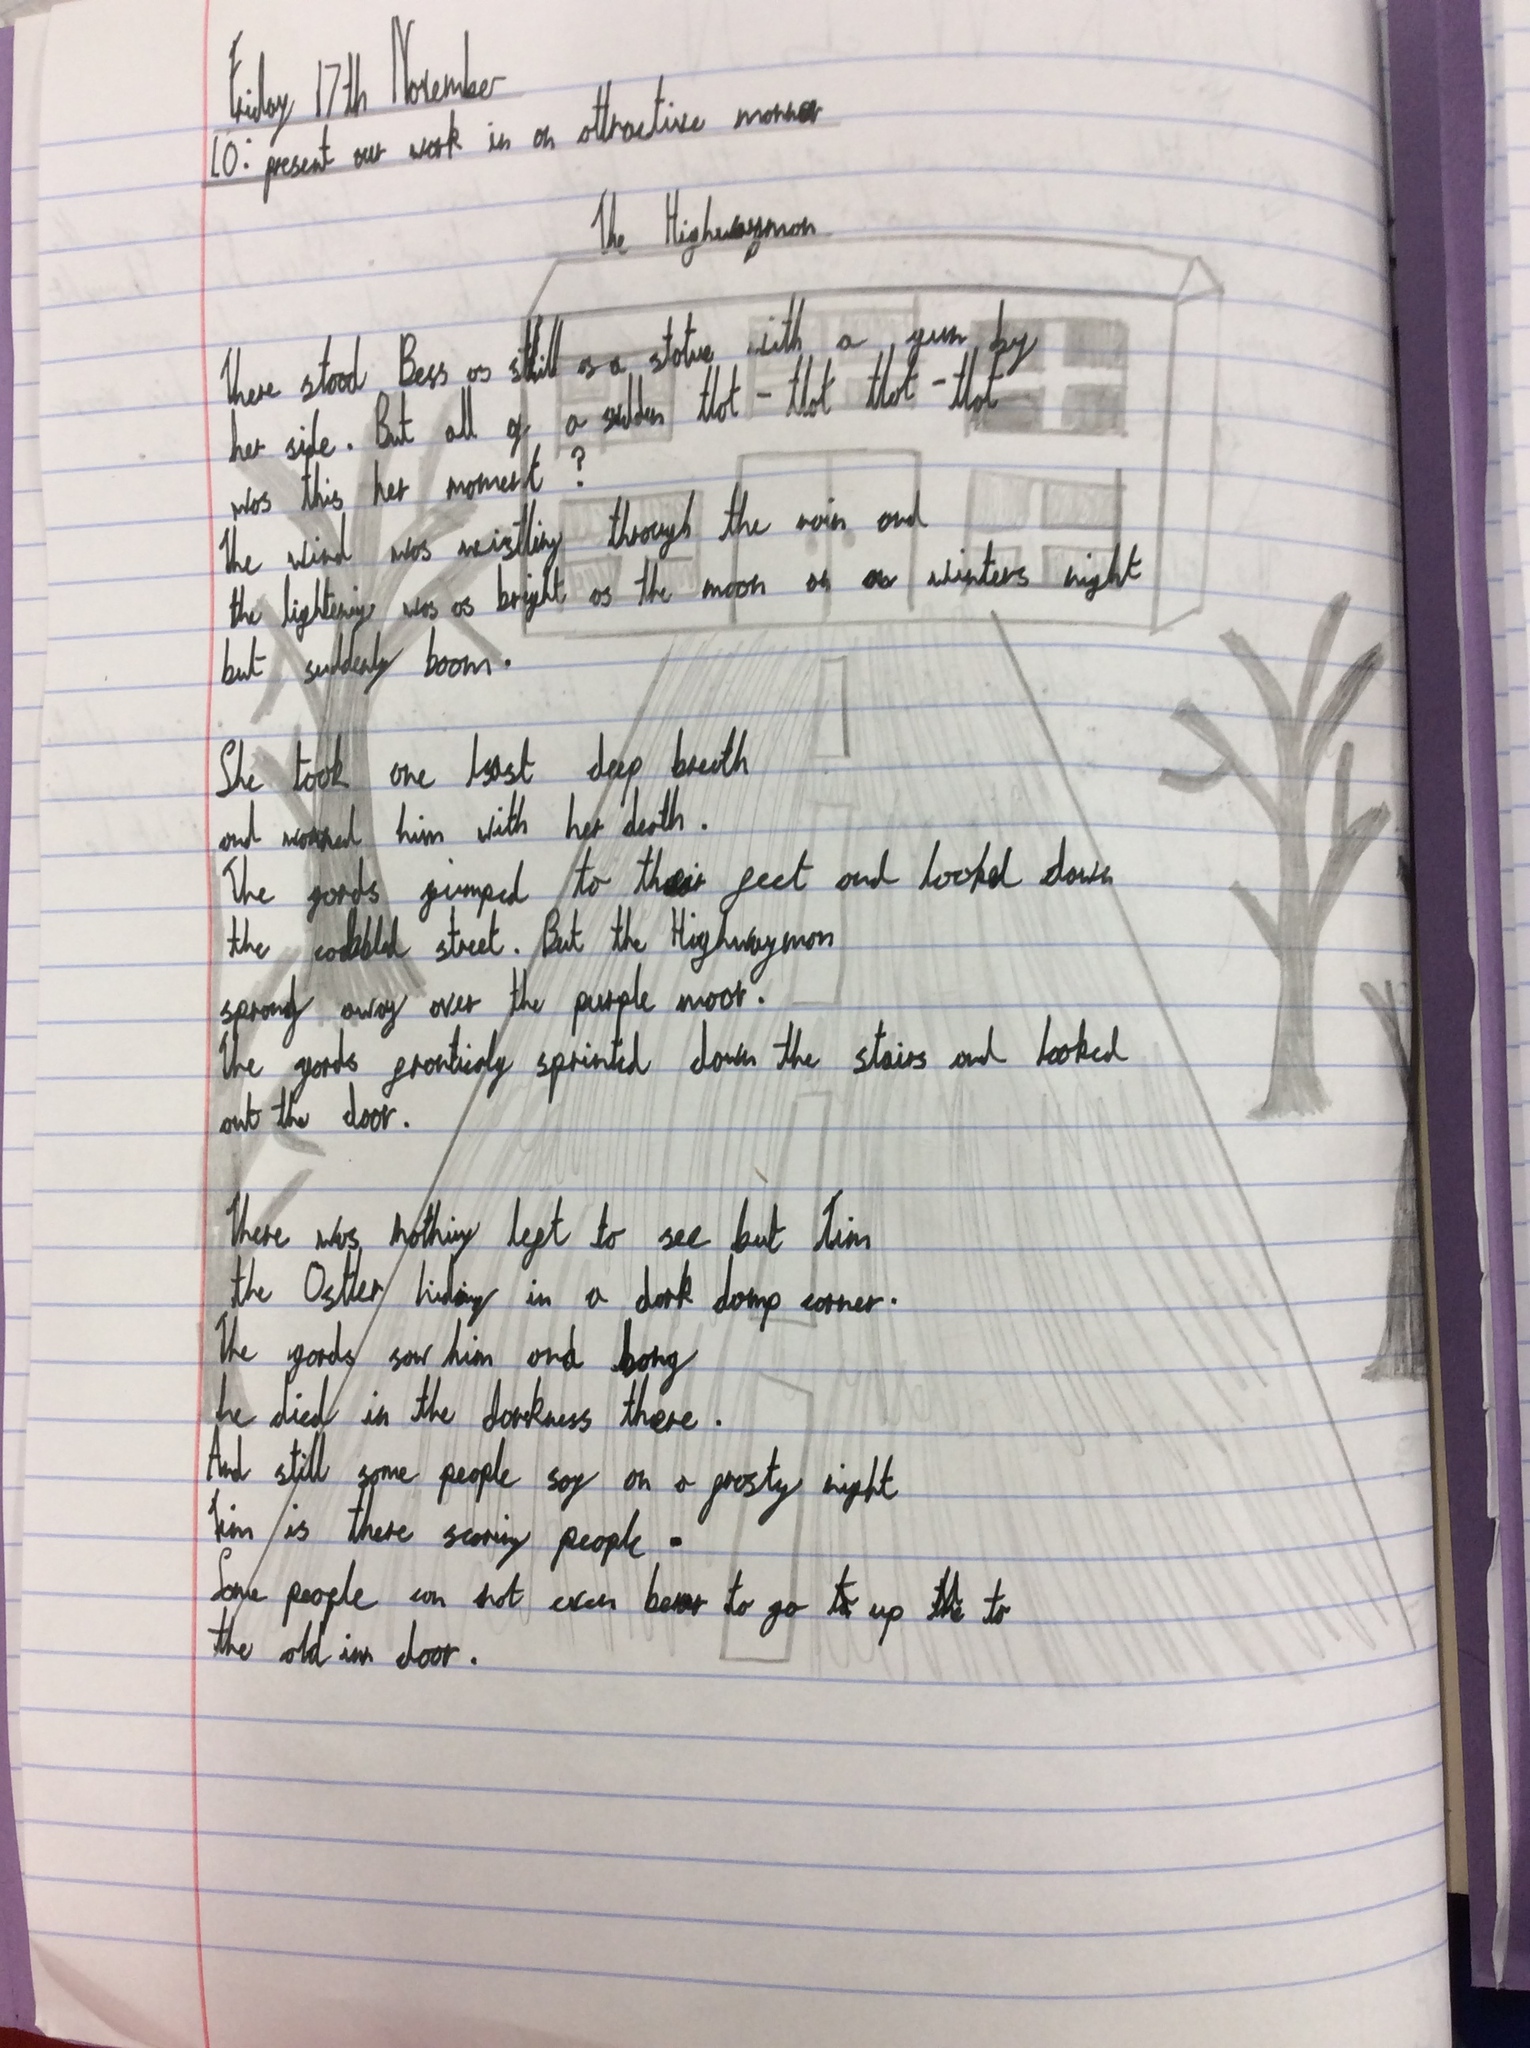 Friday 17th November
LO: present our work in an attractive manner
The Highwayman
There stood Bess as still as a statue with a gun by
her side. But all of a sudden tlot - tlot tlot - tlot
was this her moment?
The wind was wistling through the rain and
the lightening was as bright as the moon on a winters night
but suddenly boom.
She took one last deep breath
and warned him with her death.
The gards jumped to their feet and looked down
the cobbled street. But the Highwayman
sprang away over the purple moor.
The gards franticly sprinted down the stairs and looked
out the door.
There was nothing left to see but Tim
the Ostler hiding in a dark damp corner.
The gards saw him and bang
he died in the darkness there.
And still some people say on a frosty night
Tim is there scaring people.
Some people can not even bear to go up to
the old inn door.